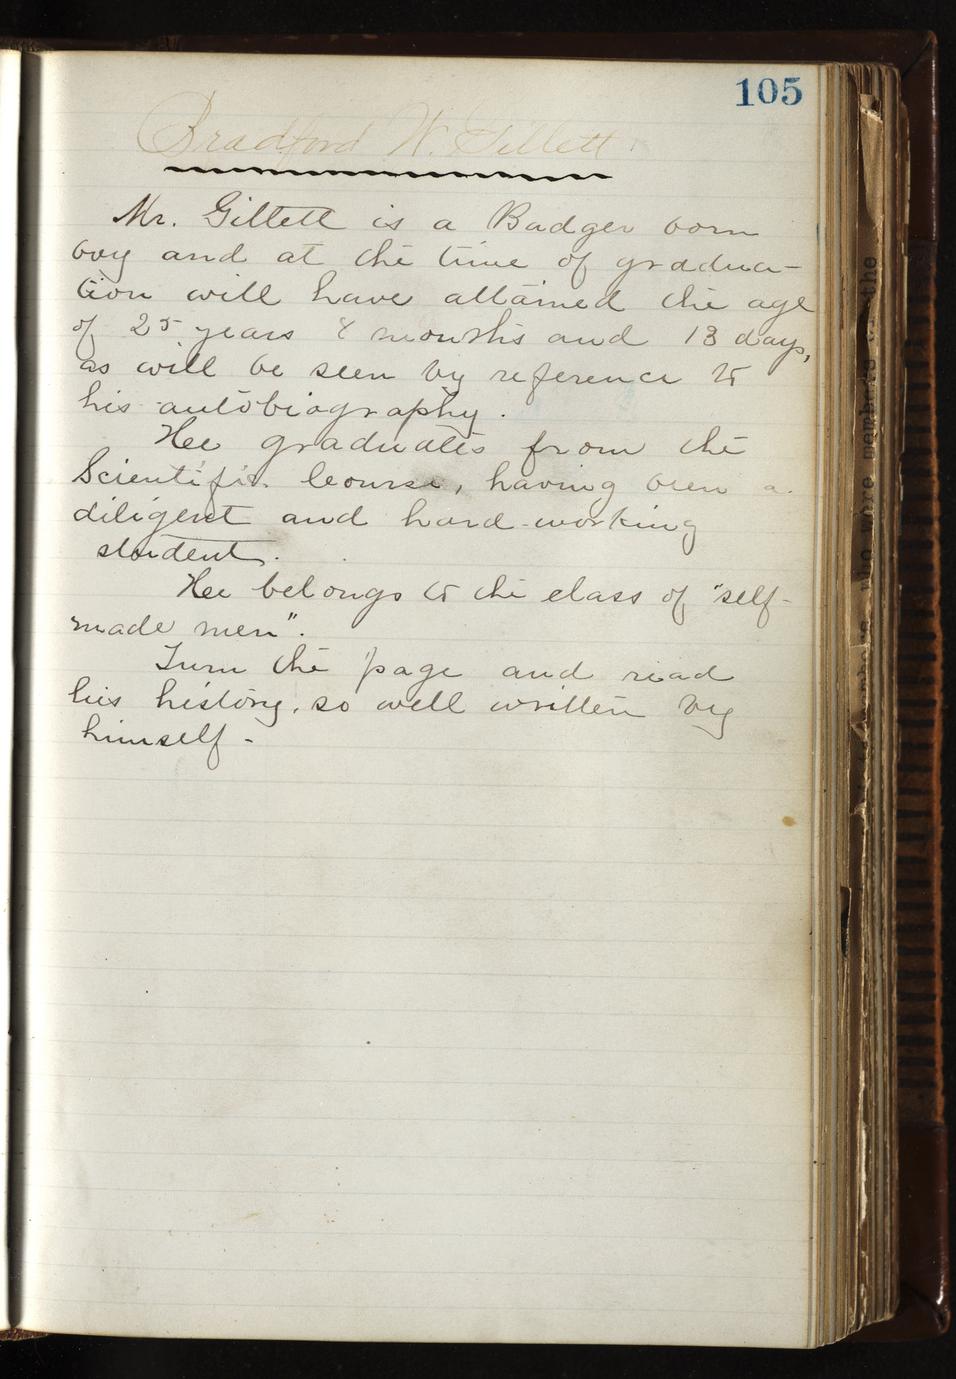 105
Bradford W. Gillett.
Mr. Gillett is a Badger born
boy and at the time of gradua-
tion will have attained the age
of 25 years 8 months and 13 days,
as will be seen by reference to
his autobiography.
He graduates from the
Scientific Course, having been a
diligent and hard-working
student.
He belongs to the class of "self-
made men".
Turn the page and read
his history, so well written by
himself -
who were members of the